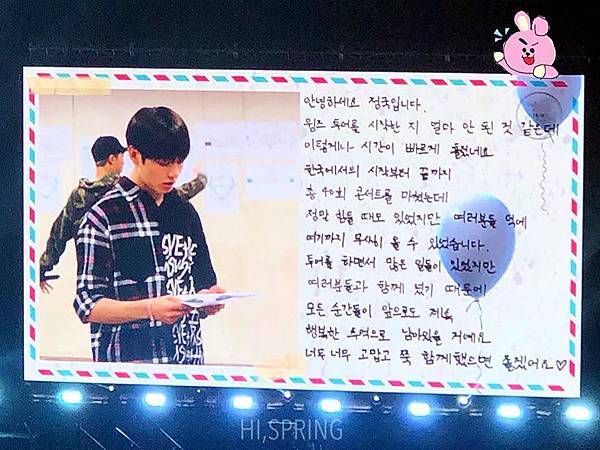 안녕하세요 정국입니다.
윙즈 투어를 시작한 지 얼마 안 된 것 같은데
이렇게나 시간이 빠르게 흘렀네요
한국에서의 시작부터 끝까지
총 40회 콘서트를 마쳤는데
정말 힘들 때도 있었지만 여러분들 덕에
여기까지 무사히 올 수 있었습니다.
투어를 하면서 많은 일들이 있었지만
여러분들과 함께 였기 때문에
모든 순간들이 앞으로도 제게
행복한 추억으로 남아있을 거에요
너무 너무 고맙고 쭉 함께했으면 좋겠어요♡
HI,SPRING